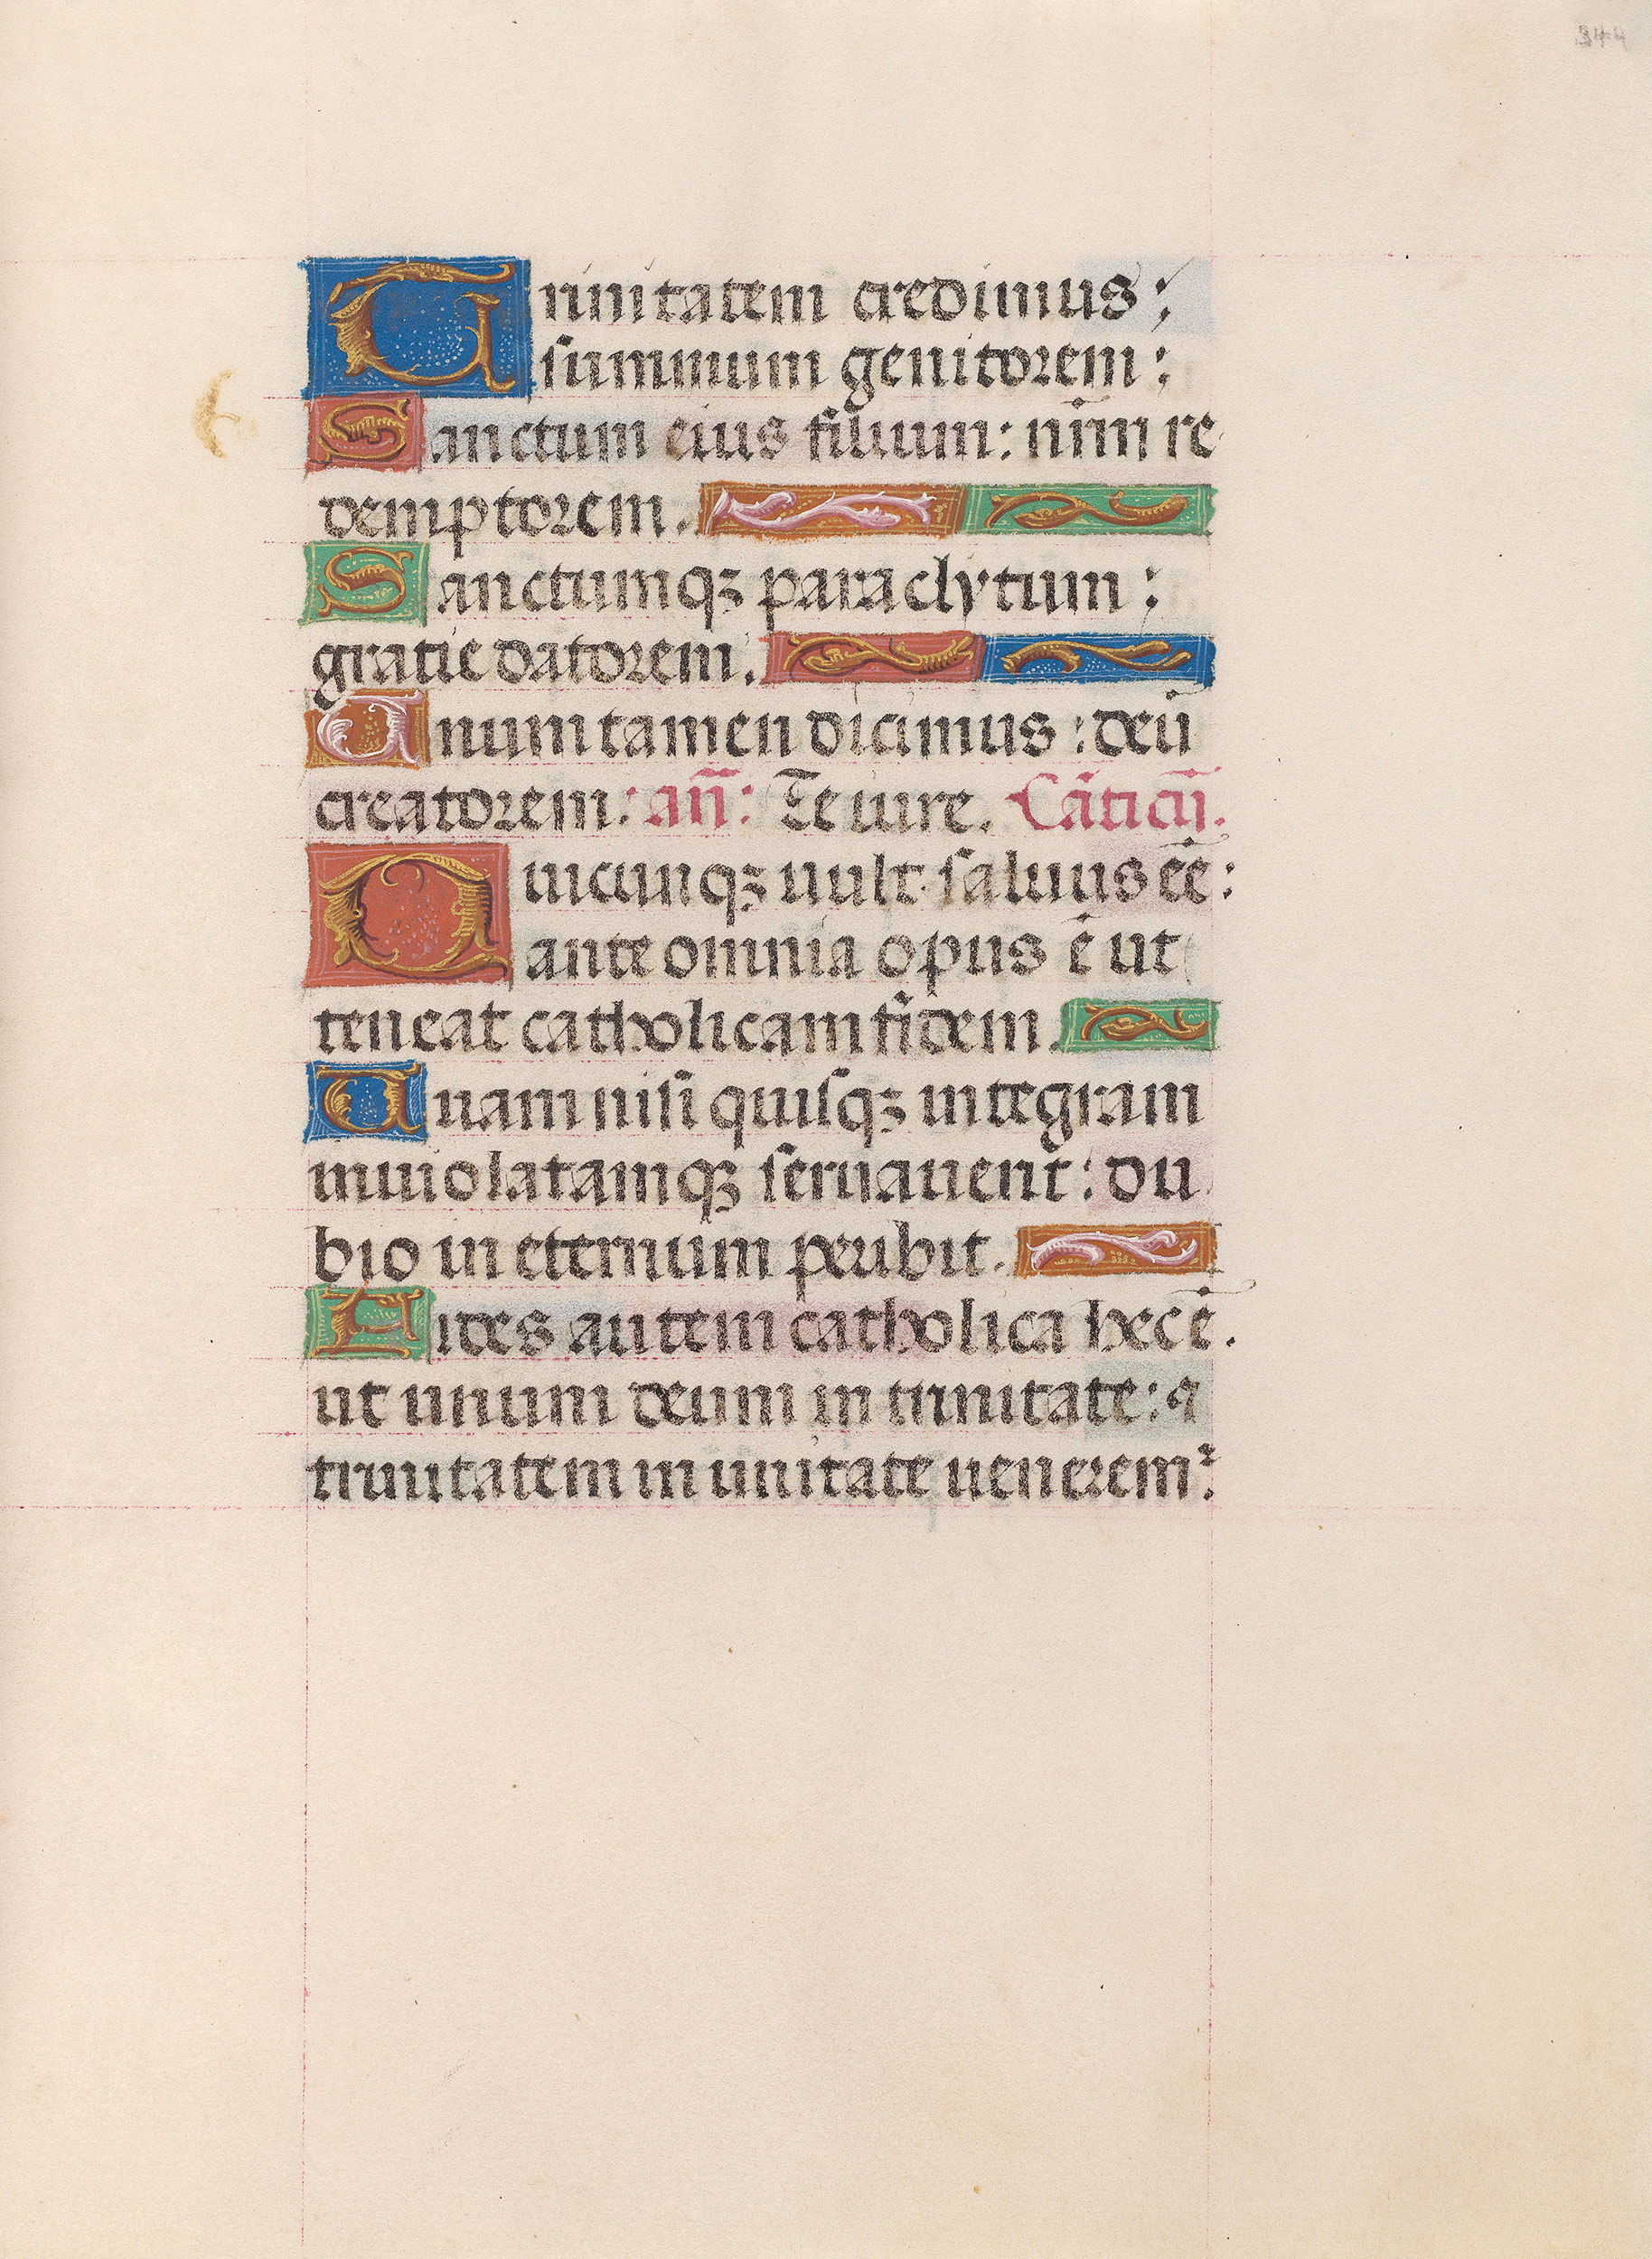 344
Vnnitatem credimus:
summum genitorem:
Sanctum eius filium: nr̄m re
demptorem.
Sanctumqꝫ paraclytum:
gratie datorem.
Vnum tamen dicimus: deū
creatorem: an̄: Te iure. Cāticū.
Quicunqꝫ uult saluus eē:
ante omnia opus ē ut
teneat catholicam fidem.
Quam nisi quisqꝫ integram
inuiolatamqꝫ seruauerit: du
bio in eternum peribit.
Fides autem catholica hec ē.
ut unum deum in trinitate: ⁊
trinitatem in unitate ueneremꝰ: